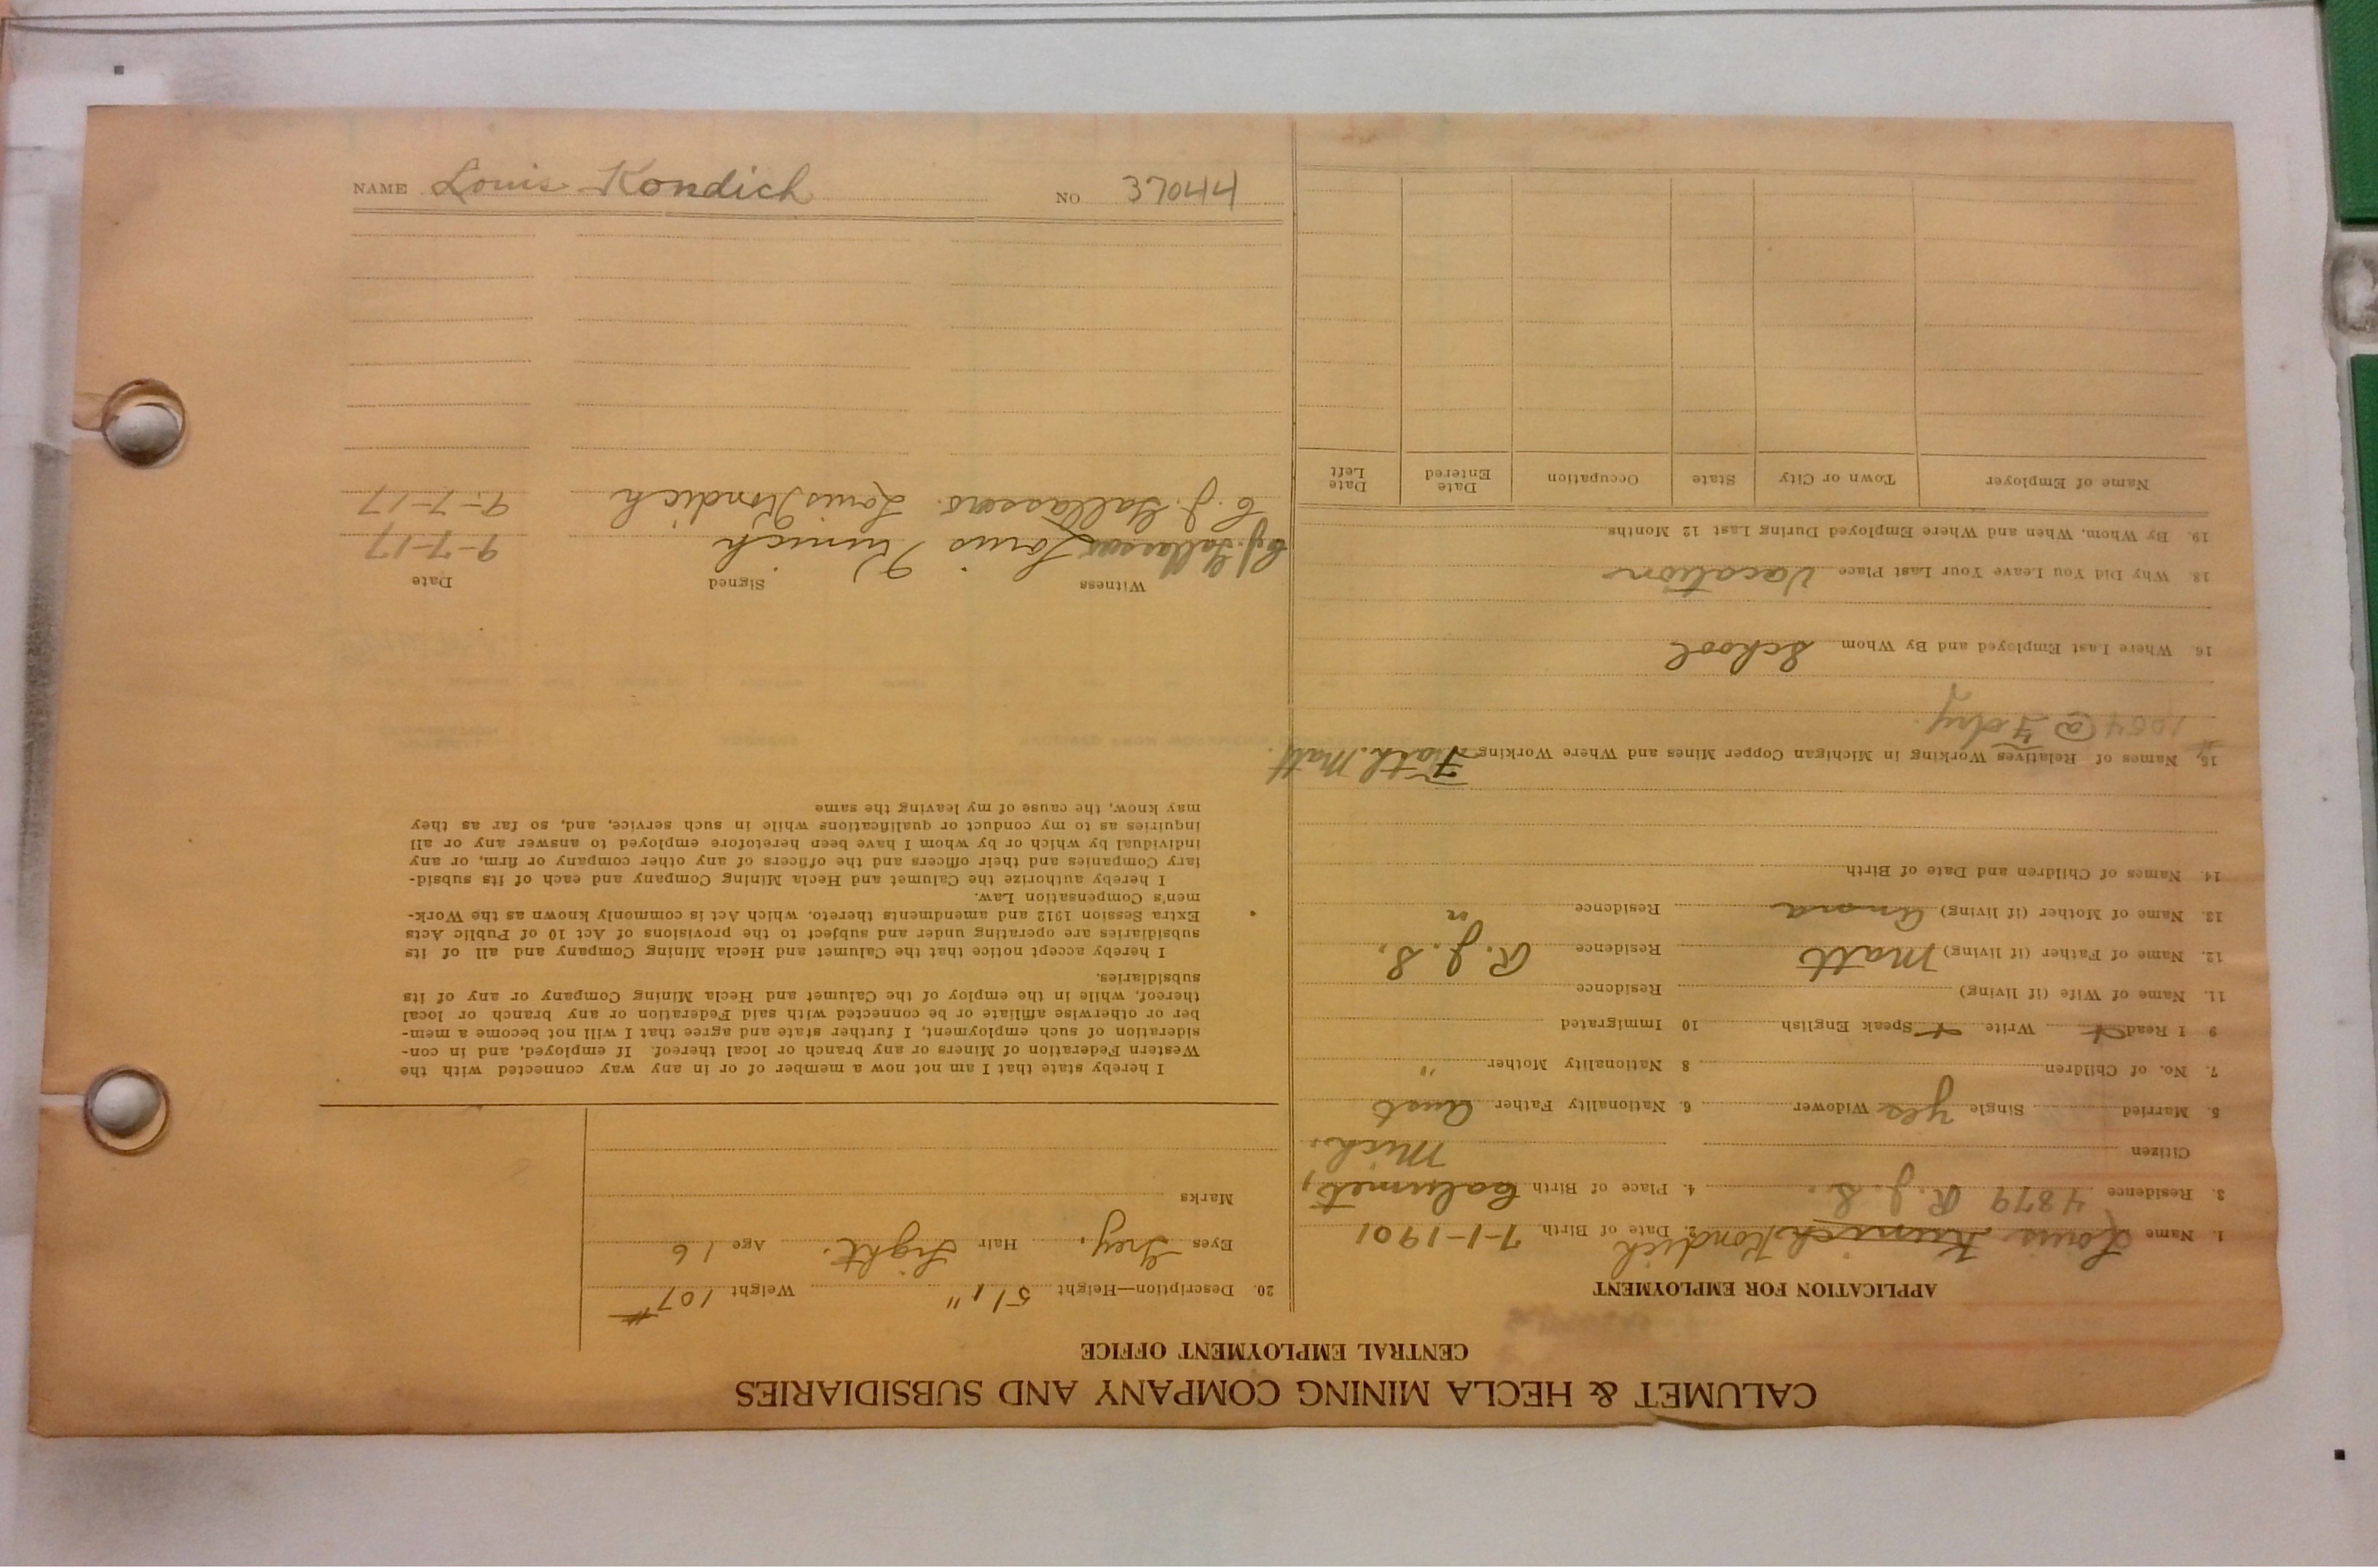 CALUMET & HECLA MINING COMPANY AND SUBSIDIARIES
CENTRAL EMPLOYMENT OFFICE
APPLICATION FOR EMPLOYMENT
1. Name Louis Kunich Kondich 2. Date of Birth 7-1-1901
3. Residence 4879 R. J. S. 4. Place of Birth Calumet,
Citizen Mich.
5. Married Single yes Widower 6. Nationality Father Aust
7. No. of Children 8 Nationality Mother "
9 I Read Write Speak English 10 Immigrated
11. Name of Wife (if living) Residence
12. Name of Father (if living) Matt Residence R. J. S.
13. Name of Mother (if living) Residence "
14. Names of Children and Date of Birth
15. Names of Relatives Working in Michigan Copper Mines and Where Working Fath. Matt.
1054 @
16. Where Last Employed and By Whom School
18. Why Did You Leave Your Last Place Vacation
19. By Whom, When and Where Employed During Last 12 Months
Name of Employer Town or City State Occupation Date Entered Date Left
20. Description—Height 5' 1" Weight 107 #
Eyes Grey. Hair Light. Age 16
Marks
I hereby state that I am not now a member of or in any way connected with the
Western Federation of Miners or any branch or local thereof. If employed, and in con-
sideration of such employment, I further state and agree that I will not become a mem-
ber or otherwise affiliate or be connected with said Federation or any branch or local
thereof, while in the employ of the Calumet and Hecla Mining Company or any of its
subsidiaries.
I hereby accept notice that the Calumet and Hecla Mining Company and all of its
subsidiaries are operating under and subject to the provisions of Act 10 of Public Acts
Extra Session 1912 and amendments thereto, which Act is commonly known as the Work-
men's Compensation Law.
I hereby authorize the Calumet and Hecla Mining Company and each of its subsid-
iary Companies and their officers and the officers of any other company or firm, or any
individual by which or by whom I have been heretofore employed to answer any or all
inquiries as to my conduct or qualifications while in such service, and, so far as they
may know, the cause of my leaving the same
Witness Signed Date
Louis Kunich 9-7-17
Louis Kondich 9-7-17
NAME Louis Kondich NO 37044